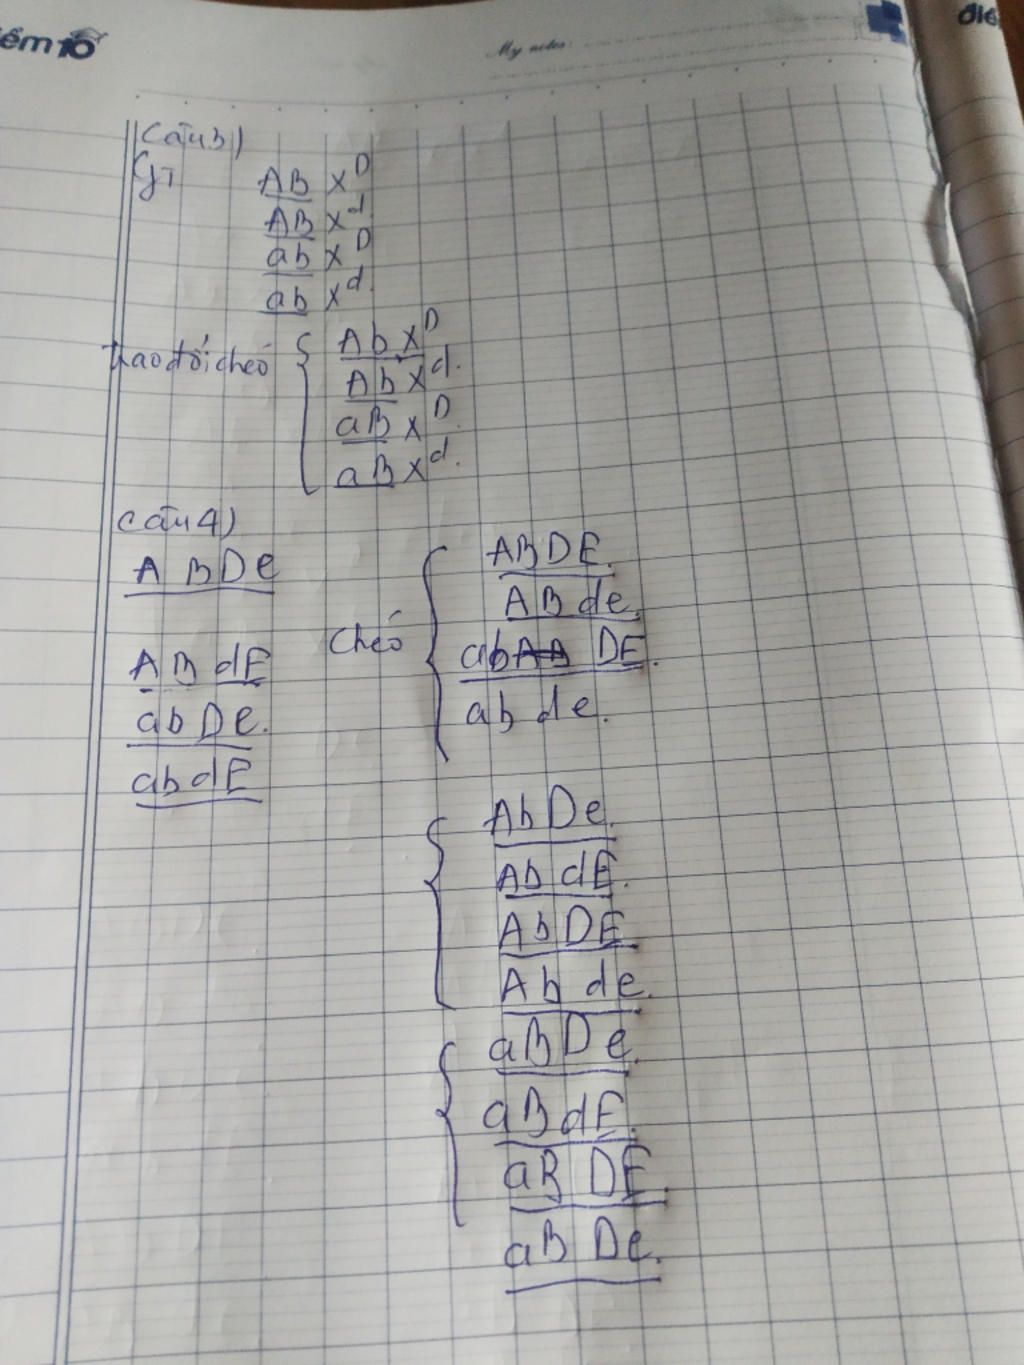 ểm 10
My notes:
điể
Câu 3)
GT
AB X^D
AB X^d
ab X^D
ab X^d
Trao đổi chéo
Ab X^D
Ab X^d.
aB X^D.
aB X^d.
Câu 4)
A B D e
A B dE
ab De.
ab dE
Chéo
ABDE.
AB de.
ab DE.
ab de.
Ab De.
Ab dE.
Ab DE
Ab de.
aB De.
aB dE.
aB DE.
aB De.